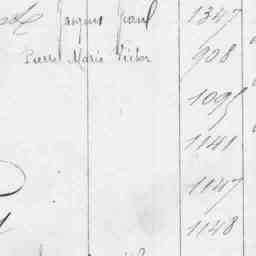 Jacques Jean 1347
Pierre Marie Victor 908
1095
1141
1147
1148